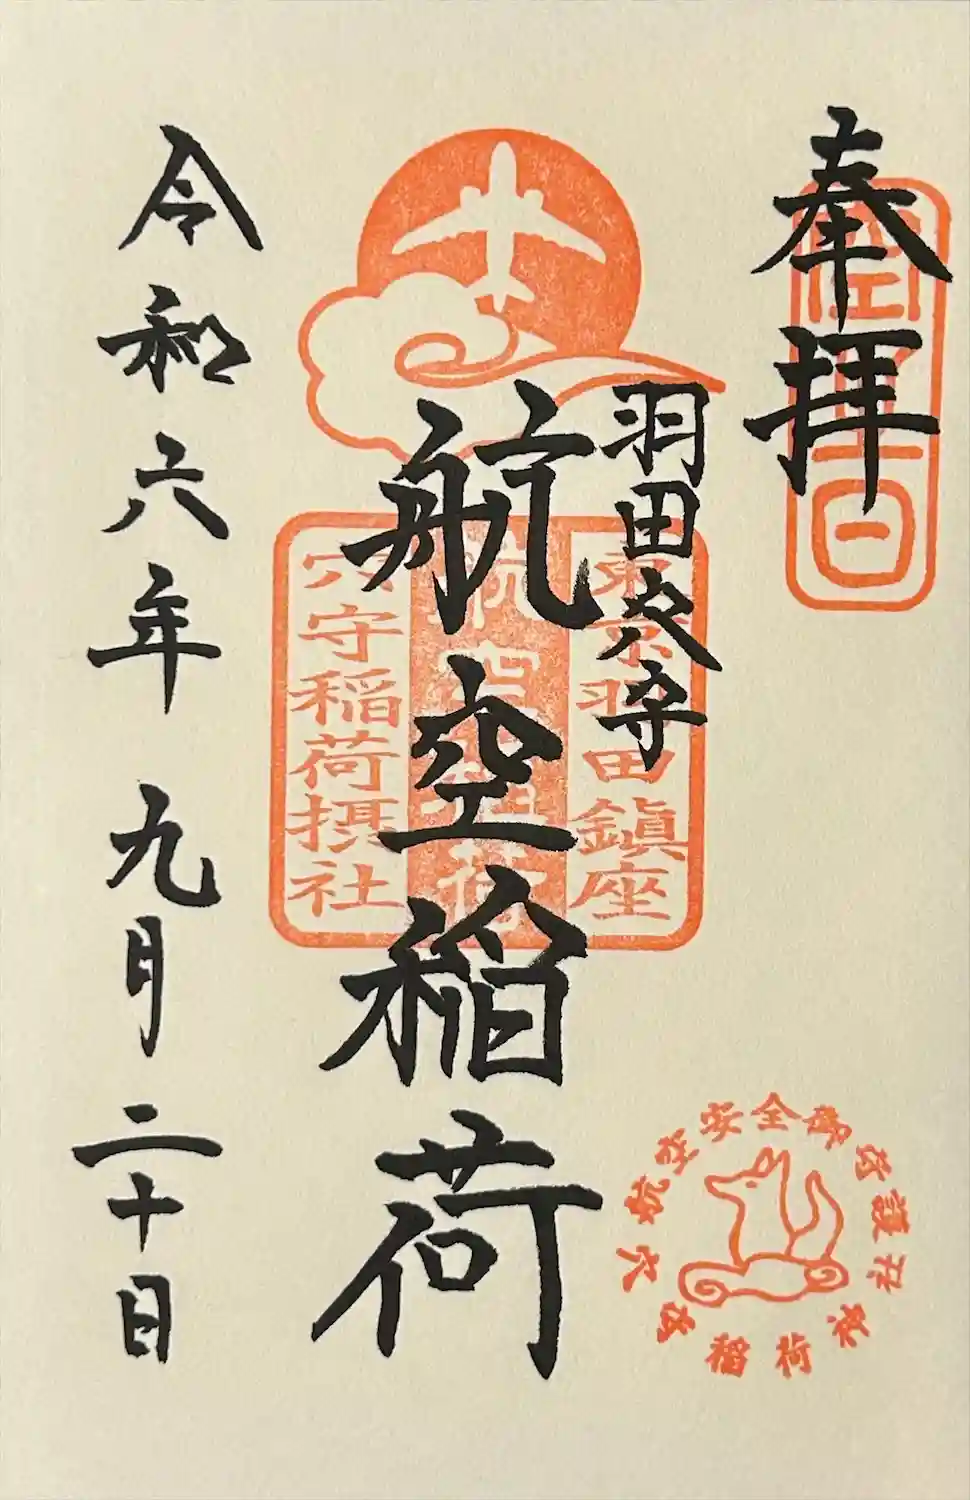 奉拝
空 日
羽田穴守
航空稲荷
東京羽田鎮座
航空稲荷
穴守稲荷摂社
令和六年九月二十日
航空安全御守護
穴守稲荷神社